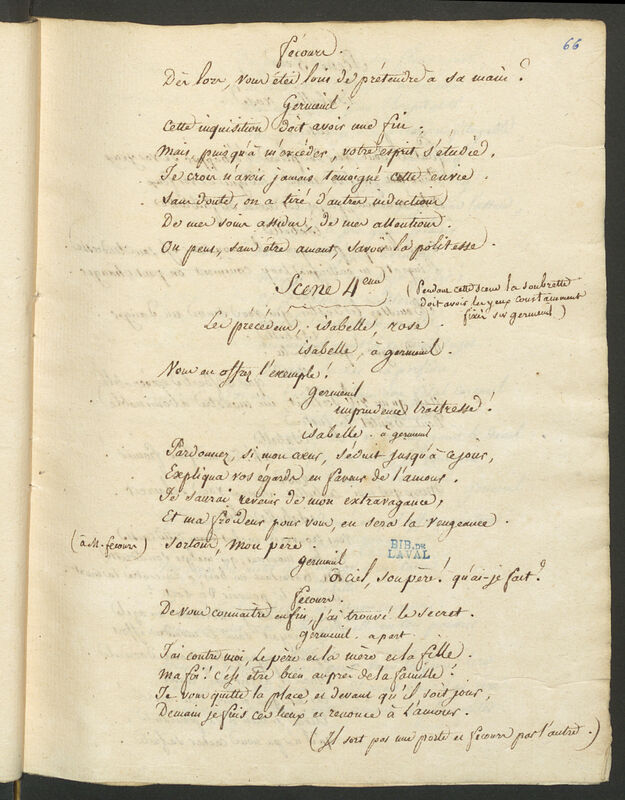 66
fécour.
Dès lors, vous êtes loin de prétendre a sa main ?
Germeuil.
Cette inquisition doit avoir une fin.
Mais puisqu'à m'excéder, votre esprit s'étudie,
Je crois n'avoir jamais témoigné cette envie.
Sans doute, on a tiré d'autres inductions
De mes soins assidus, de mes attentions.
On peut, sans être amant, savoir la politesse.
Scene 4eme
(Pendant cette scene la soubrette
doit avoir les yeux constamment
fixés sur germeuil)
Les precedens, isabelle, rose.
isabelle, à germeuil.
Vous en offrez l'exemple !
Germeuil
imprudence traitresse !
isabelle. à germeuil
Pardonnez, si mon cœur, séduit jusqu'à ce jour,
Expliqua vos égards en faveur de l'amour.
Je saurai revenir de mon extravagance,
Et ma froideur pour vous, en sera la vengeance.
(à M. fécour) sortons, mon père.
germeuil
ô ciel, son père ! qu'ai-je fait ?
fécour.
De vous connaitre enfin, j'ai trouvé le secret.
germeuil. a part.
J'ai contre moi, Le père et la mère et la fille.
Ma foi ! c'est être bien auprès de la famille !
Je vous quitte la place et devant qu'il soit jour,
Demain je fuis ces lieux et renonce à L'amour.
(Il sort par une porte et fécour par l'autre.)
BIB. DE
LAVAL